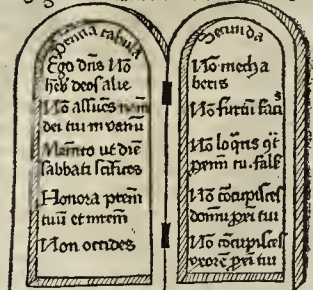 Prima tabula
Ego dn̄s Nō
heb̄ deos alie
Nō assūes nom̄
dei tui in vanū
Mam̄to ut diē
sabbati sc̄ifices
Honora prēm
tuū et mrēm
Non occides
Secunda
Nō mecha
beris
Nō furtū facis
Nō loq̄ris
tu. fals̄
Nō cōcupisces
domū p̄xi tui
Nō cōcupisces
vxorē p̄xi tui